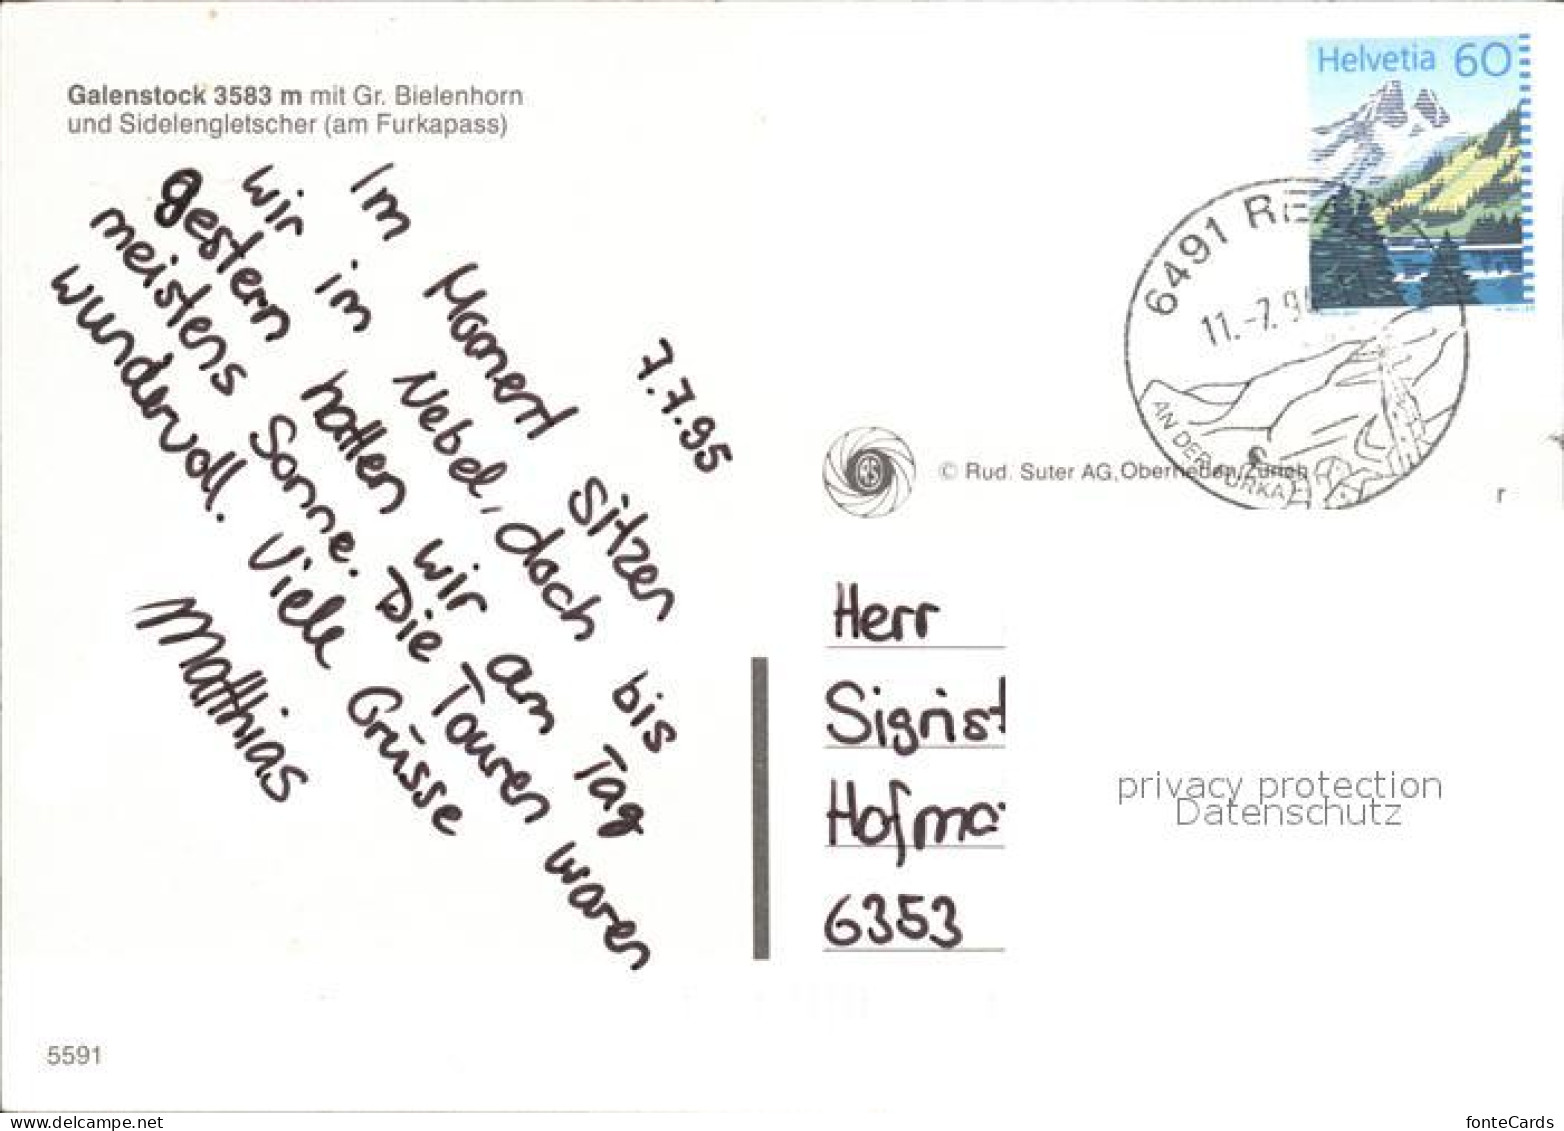 Galenstock 3583 m mit Gr. Bielenhorn
und Sidelengletscher (am Furkapass)
7.7.95
Im Moment sitzen
wir im Nebel, doch bis
gestern hatten wir am Tag
meistens Sonne. Die Touren waren
wundervoll. Viele Grüsse
Matthias
5591
Helvetia 60
6491 REA
11.-7.9
AN DER FURKA
© Rud. Suter AG, Oberrieden/Zürich
r
Herr
Sigrist
Hofma
6353
privacy protection
Datenschutz
delcampe.net
fonteCards